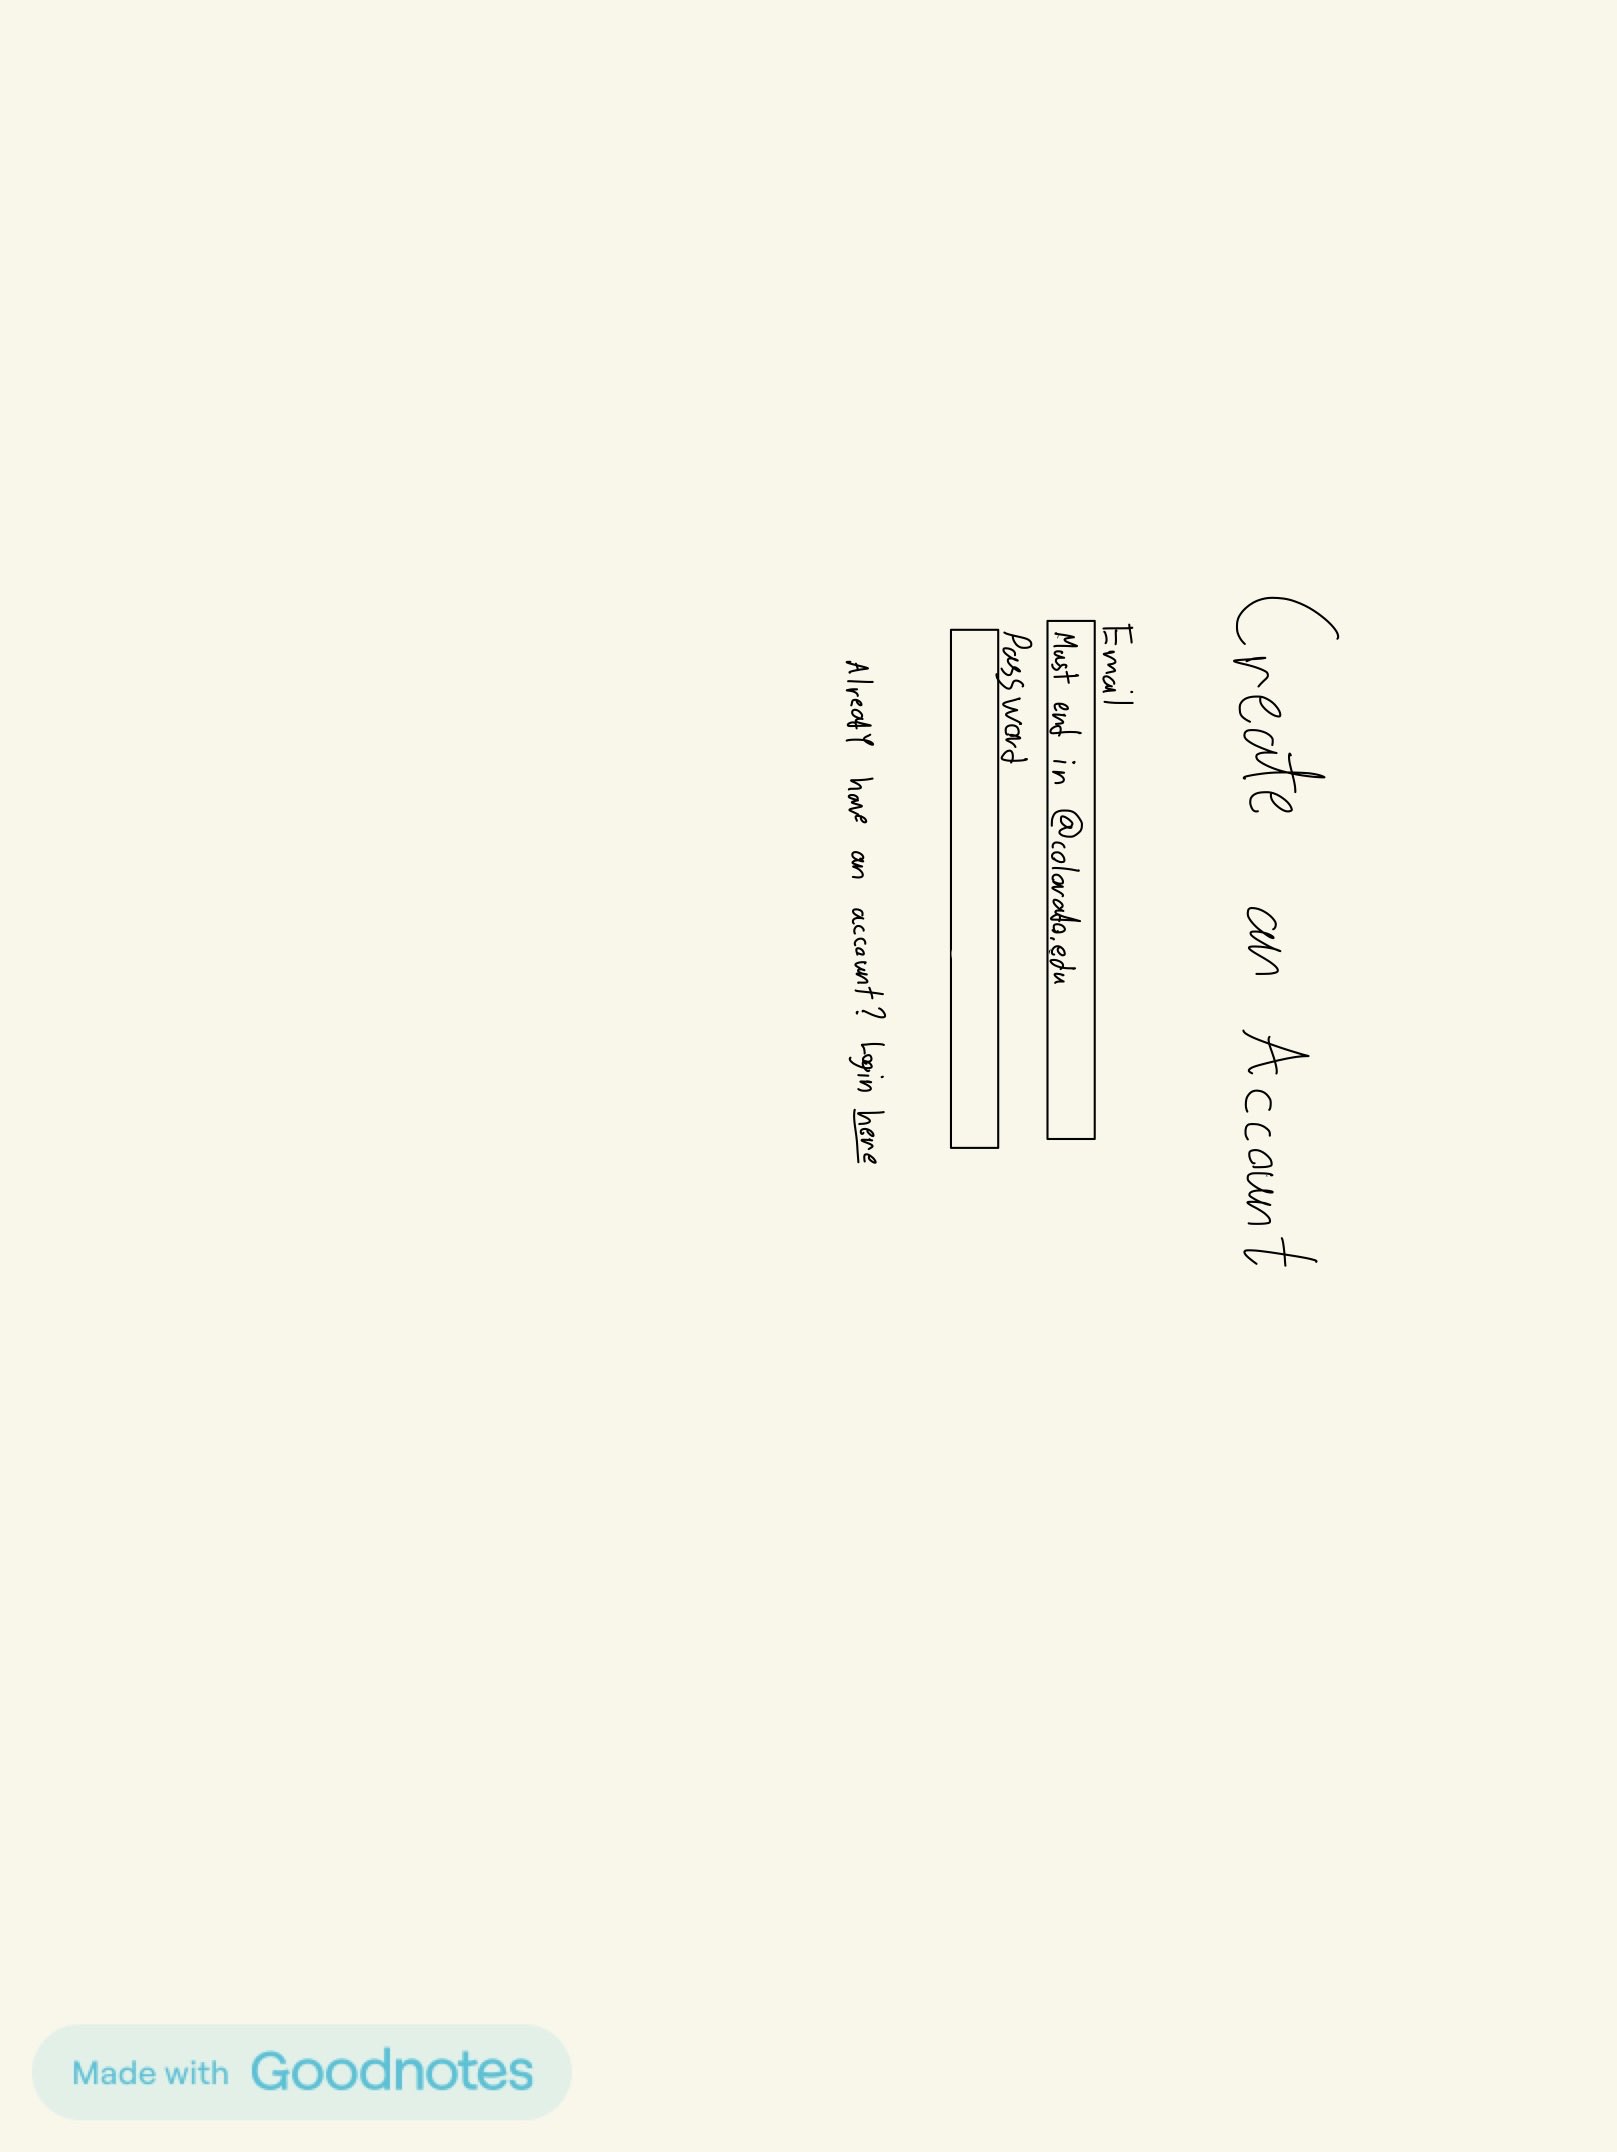 Create an Account
Email
Must end in @colorado.edu
Password
Already have an account? Login here
Made with Goodnotes